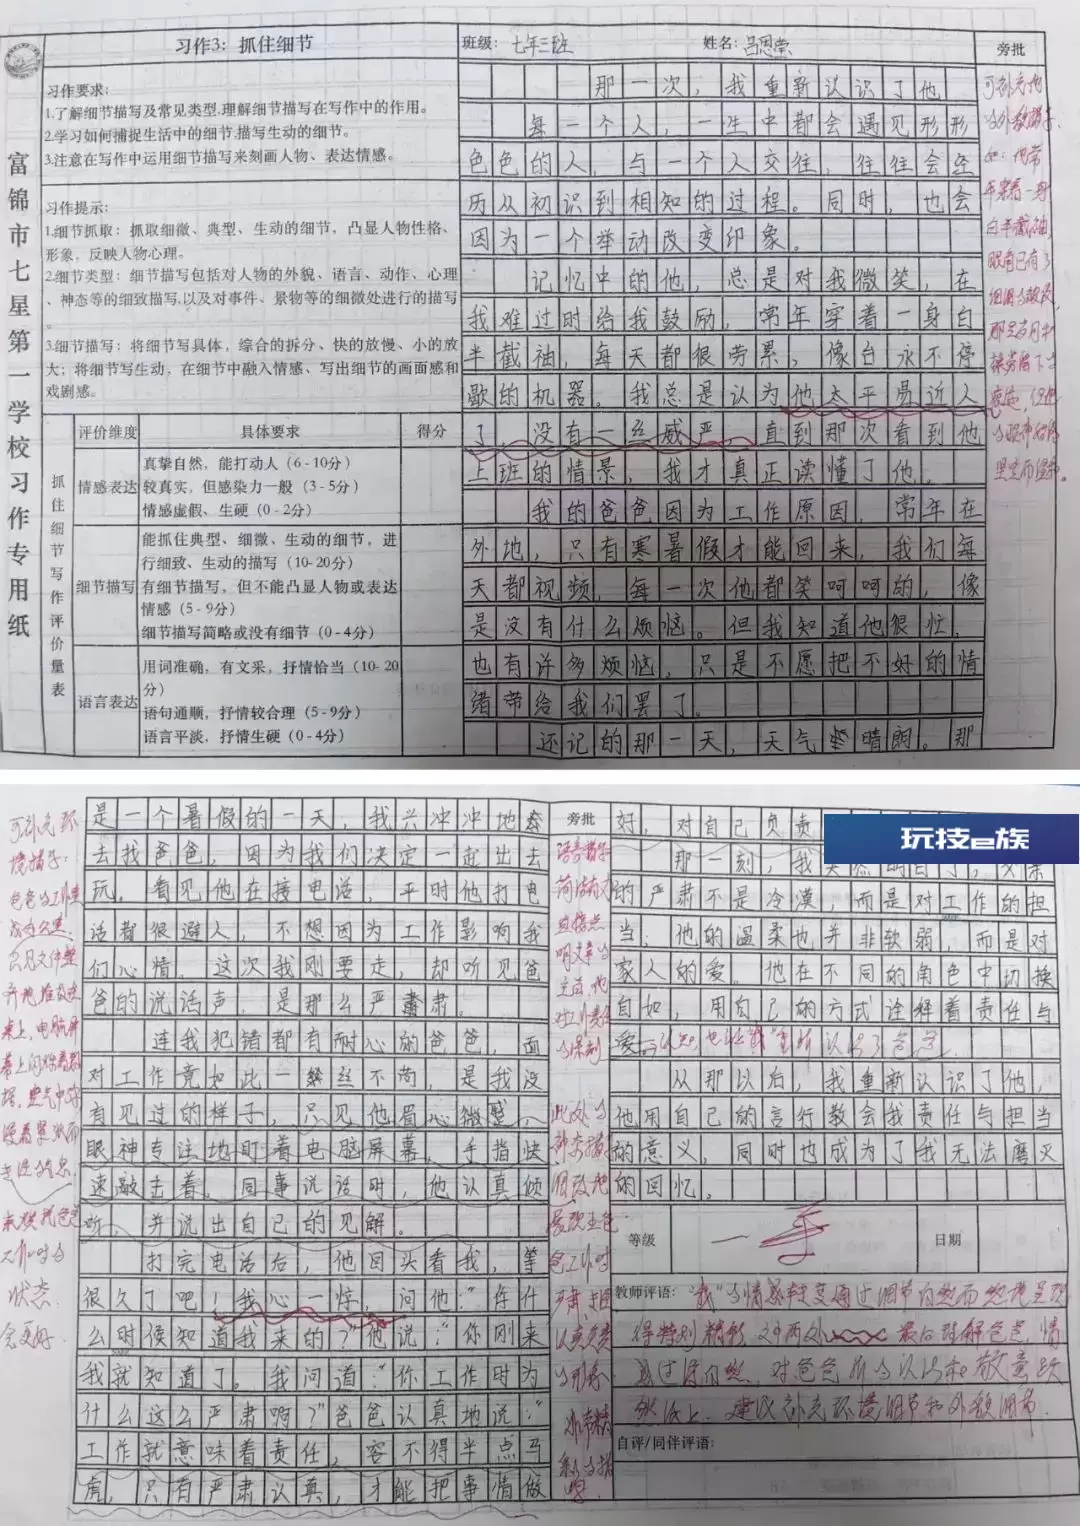 习作3：抓住细节
班级：七年三班
姓名：吕恩莹
旁批
富锦市七星第一学校习作专用纸
习作要求：
1.了解细节描写及常见类型.理解细节描写在写作中的作用。
2.学习如何捕捉生活中的细节.描写生动的细节。
3.注意在写作中运用细节描写来刻画人物、表达情感。
习作提示：
1.细节抓取：抓取细微、典型、生动的细节，凸显人物性格、
形象，反映人物心理。
2.细节类型：细节描写包括对人物的外貌、语言、动作、心理
、神态等的细致描写.以及对事件、景物等的细微处进行的描写
。
3.细节描写：将细节写具体，综合的拆分、快的放慢、小的放
大；将细节写生动，在细节中融入情感、写出细节的画面感和
戏剧感。
抓住细节写作评价量表
评价维度
具体要求
得分
情感表达
真挚自然，能打动人（6-10分）
较真实，但感染力一般（3-5分）
情感虚假、生硬（0-2分）
细节描写
能抓住典型、细微、生动的细节，进
行细致、生动的描写（10-20分）
有细节描写，但不能凸显人物或表达
情感（5-9分）
细节描写简略或没有细节（0-4分）
语言表达
用词准确，有文采，抒情恰当（10-20
分）
语句通顺，抒情较合理（5-9分）
语言平淡，抒情生硬（0-4分）
那一次，我重新认识了他
每一个人，一生中都会遇见形形
色色的人，与一个人交往，往往会经
历从初识到相知的过程。同时，也会
因为一个举动改变印象。
记忆中的他，总是对我微笑，在
我难过时给我鼓励，常年穿着一身白
半截袖，每天都很劳累，像台永不停
歇的机器。我总是认为他太平易近人
了，没有一丝威严，直到那次看到他
上班的情景，我才真正读懂了他。
我的爸爸因为工作原因，常年在
外地，只有寒暑假才能回来，我们每
天都视频，每一次他都笑呵呵的，像
是没有什么烦恼。但我知道他很忙，
也有许多烦恼，只是不愿把不好的情
绪带给我们罢了。
还记的那一天，天气晴朗。那
可补充他
的外貌描写.
如：他常
年穿着一身
白半截袖，
眼角已有了
是一个暑假的一天，我兴冲冲地
去找爸爸，因为我们决定一起出去
玩。看见他在接电话，平时他打电
话都很避人，不想因为工作影响我
们心情。这次我刚要走，却听见爸
爸的说话声，是那么严肃。
连我犯错都有耐心的爸爸，面
对工作竟如此一丝不苟，是我没
有见过的样子，只见他眉心微蹙，
眼神专注地盯着电脑屏幕，手指快
速敲击着。同事说话时，他认真倾
听，并说出自己的见解。
打完电话后，他回头看我，等
很久了吧！我心一惊，问他：“你什
么时候知道我来的？”他说：“你刚来
我就知道了。我问道：“你工作时为
什么这么严肃啊？”爸爸认真地说：“
工作就意味着责任，容不得半点马
虎，只有严肃认真，才能把事情做
可补充环
境描写：
旁批
好，对自己负责
玩技e族
那一刻，我
的严肃不是冷漠，而是对工作的担
当；他的温柔也并非软弱，而是对
家人的爱。他在不同的角色中切换
自如，用自己的方式诠释着责任与
爱
从那以后，我重新认识了他，
他用自己的言行教会我责任与担当
的意义，同时也成为了我无法磨灭
的回忆。
等级
日期
教师评语：“我”的情感转变通过细节自然而然地呈现
得特别精彩
建议补充环境细节和外貌细节.
自评/同伴评语：